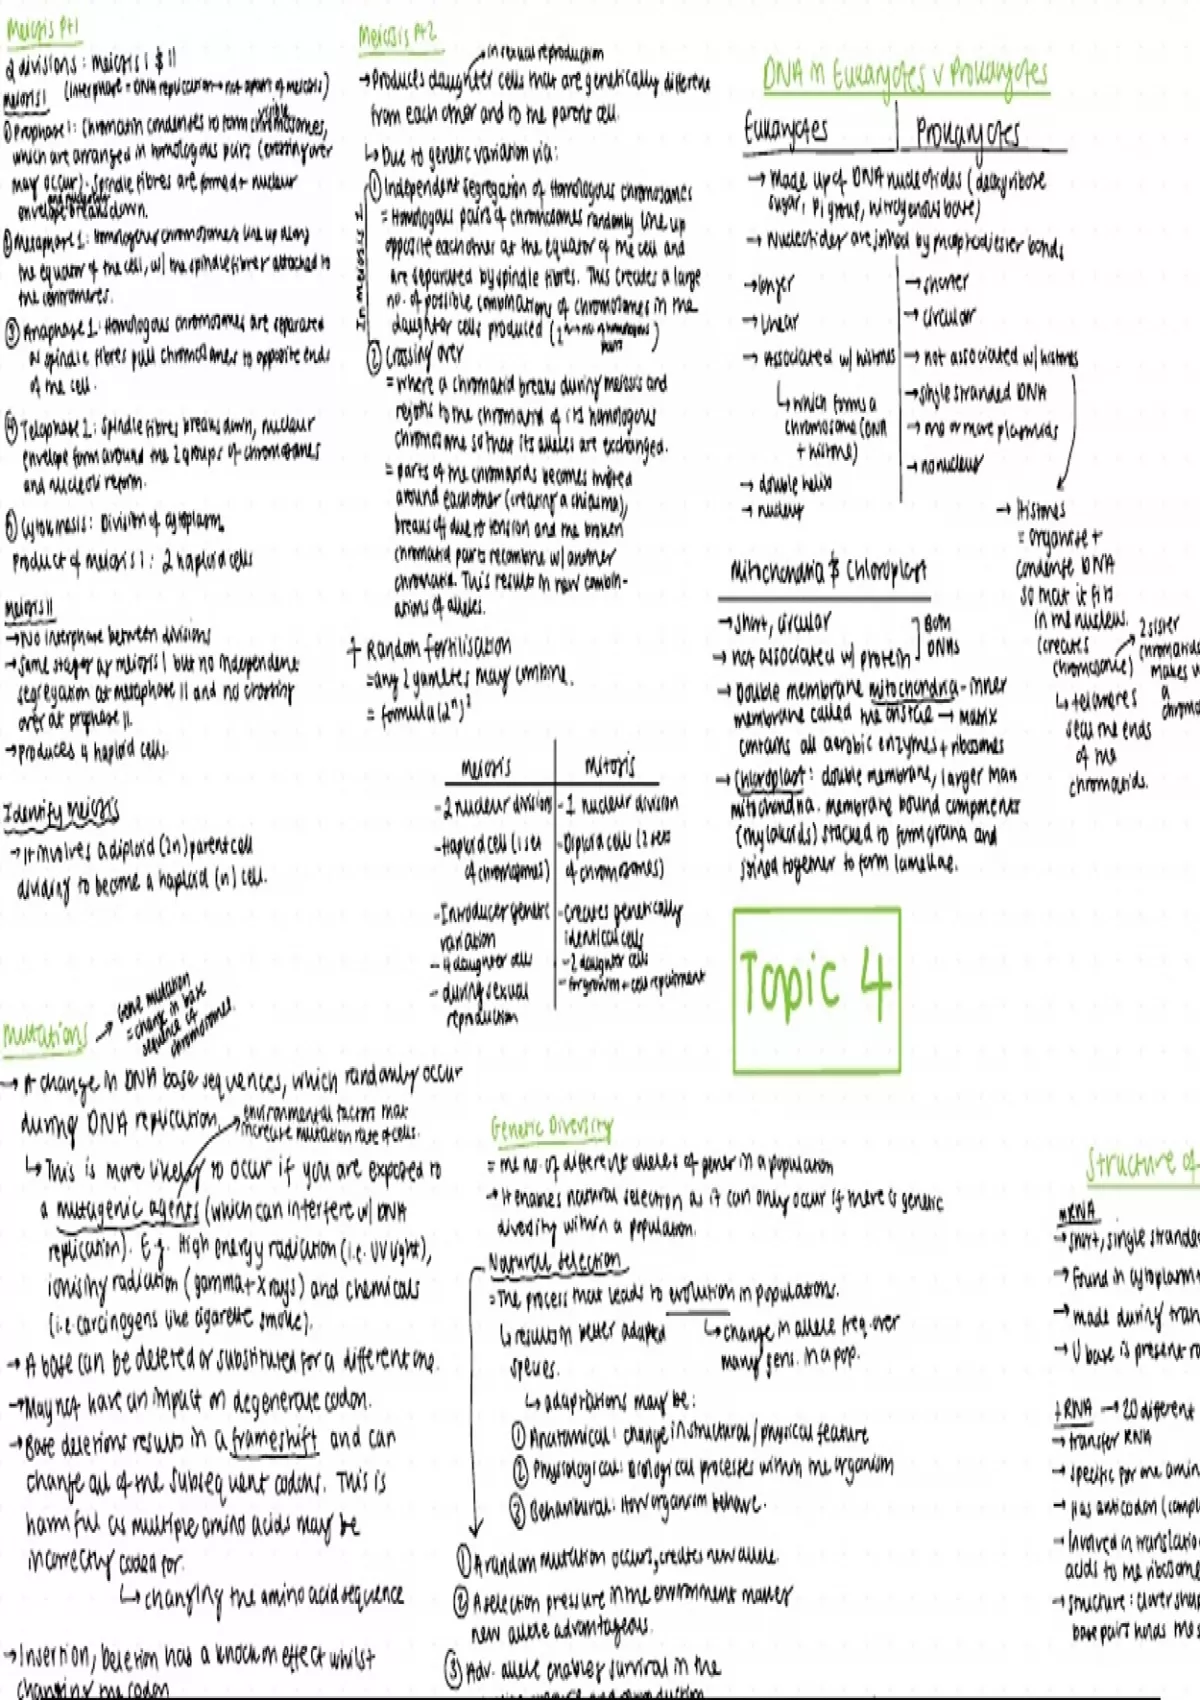 Meiosis Pt1
2 divisions: meiosis I & II
(interphase = DNA replication → not apart of meiosis)
meiosis I
① Prophase 1: Chromatin condenses to form visible chromosomes,
which are arranged in homologous pairs (crossing over
may occur). Spindle fibres are formed + nuclear
envelope breaks down.
② Metaphase 1: homologous chromosomes line up along
the equator of the cell, w/ the spindle fibres attached to
the centromeres.
③ Anaphase 1: Homologous chromosomes are separated
as spindle fibres pull chromosomes to opposite ends
of the cell.
④ Telophase 1: Spindle fibres breaks down, nuclear
envelope form around the 2 groups of chromosomes
and nucleoli reform.
⑤ Cytokinesis: Division of cytoplasm.
Product of meiosis 1: 2 haploid cells
meiosis II
→ No interphase between divisions
→ Same stages as meiosis I but no independent
segregation at metaphase II and no crossing
over at prophase II.
→ produces 4 haploid cells.
Identify Meiosis
→ It involves a diploid (2n) parent cell
dividing to become a haploid (n) cell.
Meiosis Pt2
in sexual reproduction
→ Produces daughter cells that are genetically different
from each other and to the parent cell.
↳ Due to genetic variation via:
In meiosis I
① Independent segregation of Homologous chromosomes
= Homologous pairs of chromosomes randomly line up
opposite each other at the equator of the cell and
are separated by spindle fibres. This creates a large
no. of possible combinations of chromosomes in the
daughter cells produced
② Crossing over
= where a chromatid breaks during meiosis and
rejoins to the chromatid of its homologous
chromosome so that its alleles are exchanged.
= parts of the chromatids becomes twisted
around each other (creating a chiasma),
breaks off due to tension and the broken
chromatid parts recombine w/ another
chromatid. This results in new combin-
ations of alleles.
+ Random fertilisation
= any 2 gametes may combine.
= formula (2ⁿ)²
Meiosis | Mitosis
- 2 nuclear divisions | - 1 nuclear division
- Haploid cell (1 set | - Diploid cells (2 sets
of chromosomes) | of chromosomes)
- Introduces genetic | - Creates genetically
variation | identical cells
- 4 daughter cells | - 2 daughter cells
- during sexual | - for growth + cell
reproduction
DNA in Eukaryotes v Prokaryotes
Eukaryotes | Prokaryotes
→ Made up of DNA nucleotides (deoxyribose
sugar, Pi group, nitrogenous base)
→ Nucleotides are joined by phosphodiester bonds
→ longer | → shorter
→ linear | → circular
→ Associated w/ histones | → not associated w/ histones
↳ which forms a
chromosome (DNA
+ histone)
→ single stranded DNA
→ one or more plasmids
→ no nucleus
→ double helix
→ nucleus
→ Histones
= organise +
condense DNA
so that it fits
in the nucleus.
(creates
chromosome)
↳ telomeres
seal the ends
of the
chromatids.
2 sister
chromatids
makes u
a
chromo
Mitochondria & Chloroplast
→ short, circular
→ not associated w/ protein
Both DNAs
→ Double membrane mitochondria - inner
membrane called the cristae → Matrix
contains all aerobic enzymes + ribosomes
→ Chloroplast: double membrane, larger than
mitochondria. membrane bound components
(thylakoids) stacked to form grana and
joined together to form lamellae.
Topic 4
Mutations
Gene mutation
= change in base
sequence of
chromosomes.
→ A change in DNA base sequences, which randomly occur
during DNA replication.
environmental factors that
increase mutation rate of cells.
↳ This is more likely to occur if you are exposed to
a mutagenic agents (which can interfere w/ DNA
replication). E.g. High energy radiation (i.e. UV light),
ionising radiation (gamma + X rays) and chemicals
(i.e. carcinogens like cigarette smoke).
→ A base can be deleted or substituted for a different one.
→ May not have an impact on degenerate codon.
→ Base deletions results in a frameshift and can
change all of the subsequent codons. This is
harmful as multiple amino acids may be
incorrectly coded for.
↳ changing the amino acid sequence
→ Insertion, Deletion has a knock on effect whilst
changing the codon
Genetic Diversity
= the no. of different alleles of genes in a population
→ It enables natural selection as it can only occur if there is genetic
diversity within a population.
Natural Selection
= The process that leads to evolution in populations.
↳ results in better adapted
species.
↳ change in allele freq. over
many gens. in a pop.
↳ adaptations may be:
① Anatomical: change in structural / physical feature
② Physiological: Biological processes within the organism
③ Behavioural: How organism behave.
① A random mutation occurs, creates new allele.
② A selection pressure in the environment makes
new allele advantageous.
③ Adv. allele enables survival in the
Structure of
mRNA
→ short, single strande
→ Found in cytoplasm
→ made during tran
→ U base is present
tRNA → 20 different
→ transfer RNA
→ specific for one amin
→ Has anticodon (compl
→ Involved in translatio
acids to the ribosome
→ structure: clover shap
base pairs holds the s